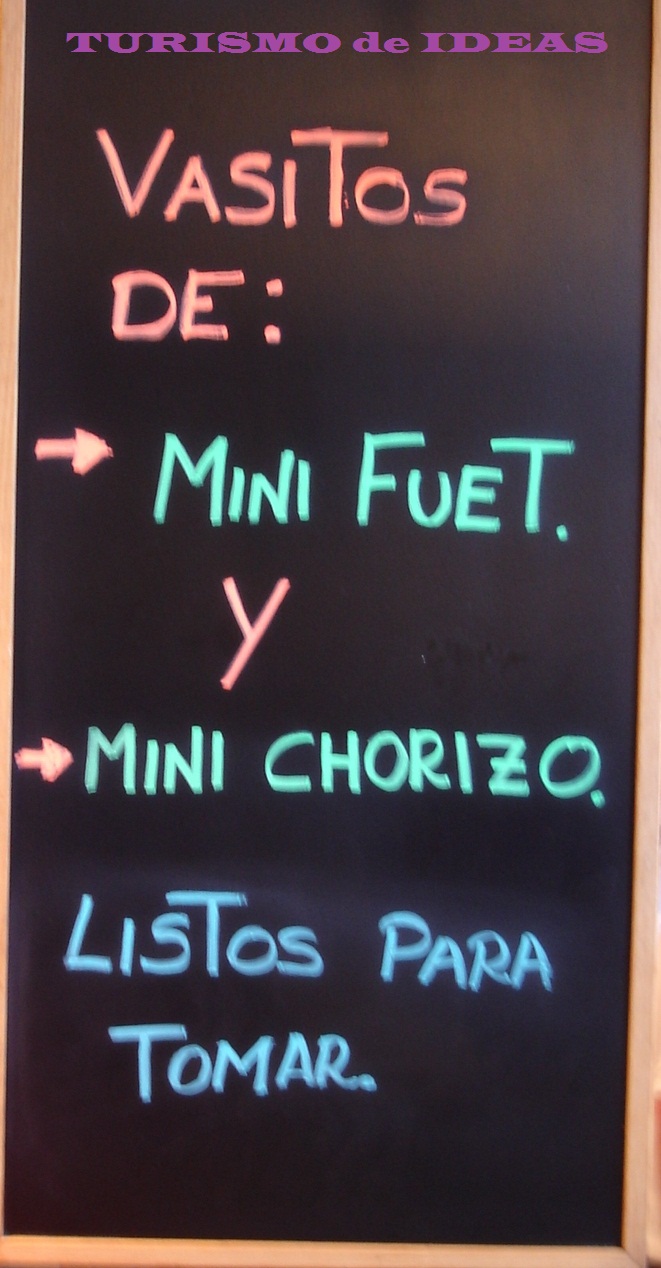 TURISMO de IDEAS
VASITOS
DE:
MINI FUET.
Y
MINI CHORIZO.
LISTOS PARA
TOMAR.